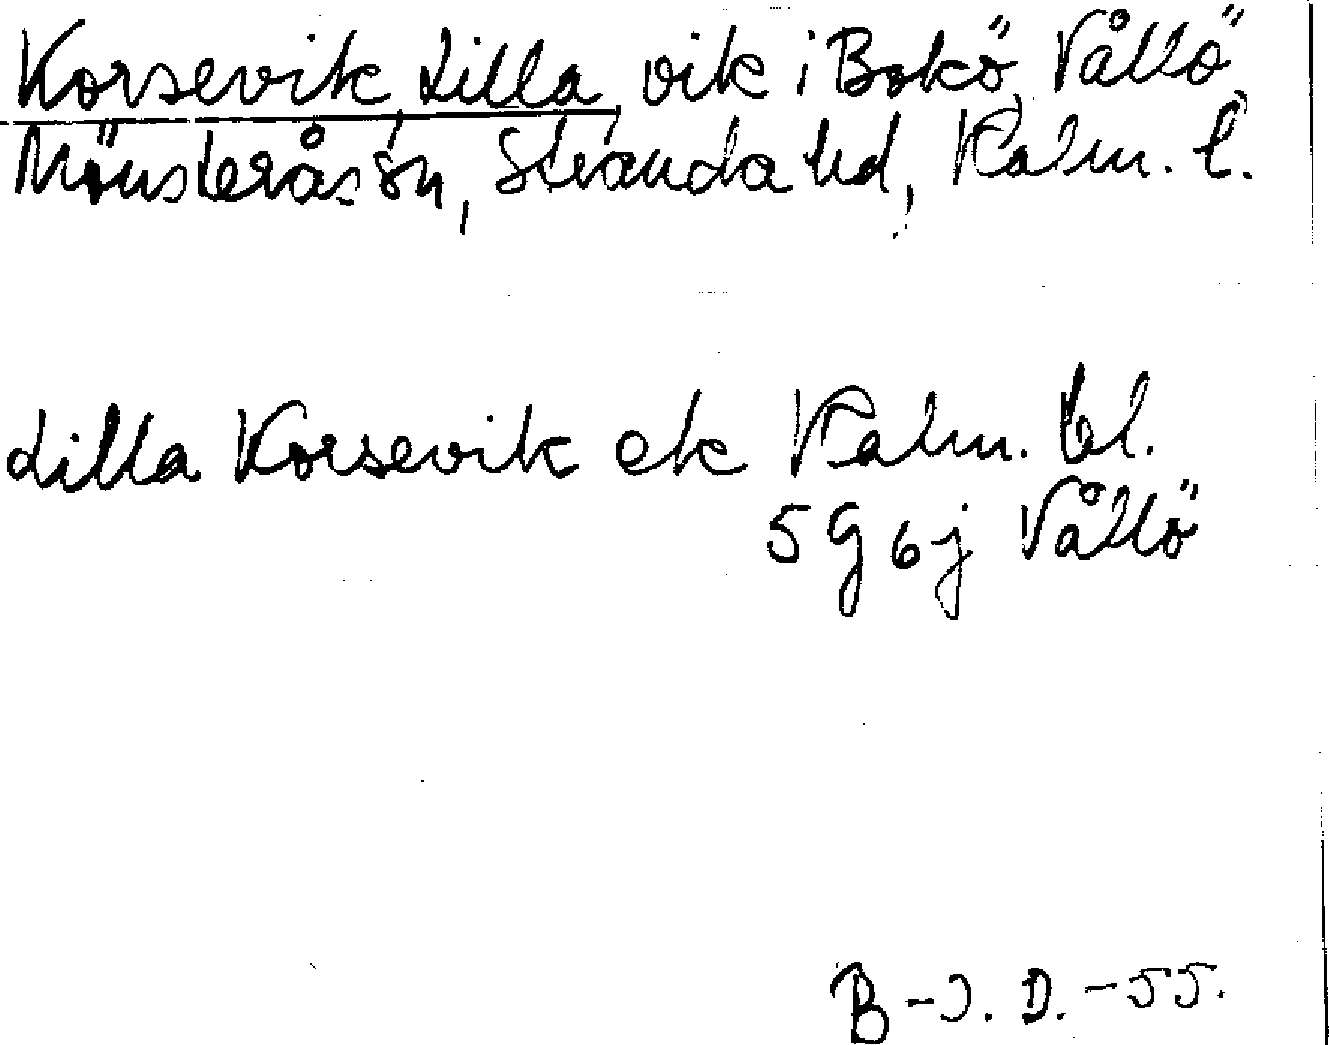 Korsevik, Lilla, vik i Bokö, Vållö,
Mönsterås sn, Stranda hd, Kalm. l.
Lilla Korsevik ek Kalm. bl.
5 G 6 j Vållö
B-J. D. -55.